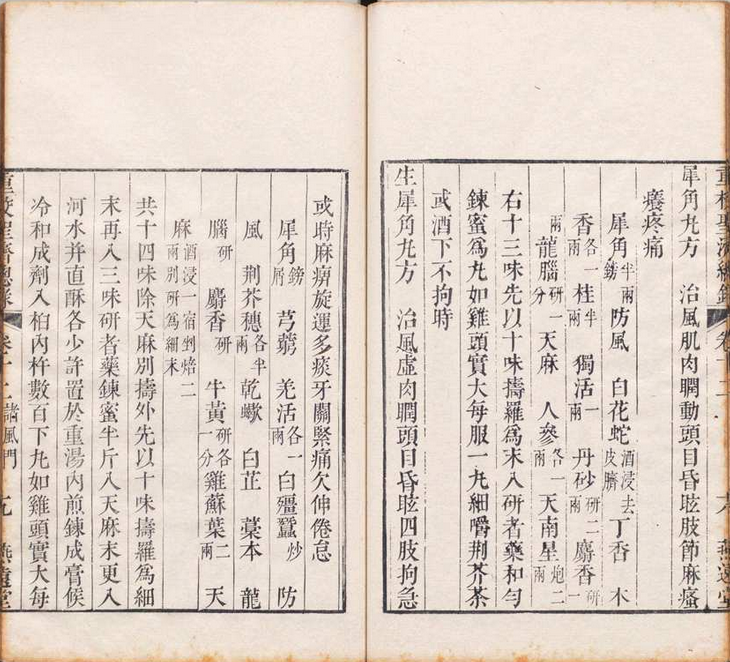 重校聖濟總錄 卷十二 燕遠堂
犀角丸方 治風肌肉瞤動頭目昏眩肢節麻瘙
癢疼痛
犀角鎊半兩 防風 白花蛇酒浸去皮臍 丁香 木
香各一兩 桂半兩 獨活一兩 丹砂研二兩 麝香研一
兩 龍腦研一分 天麻 人參各一兩 天南星炮二兩
右十三味先以十味擣羅爲末入研者藥和勻
鍊蜜爲丸如雞頭實大每服一丸細嚼荆芥茶
或酒下不拘時
生犀角丸方 治風虛肉瞤頭目昏眩四肢拘急
或時麻痹旋運多痰牙關緊痛欠伸倦怠
犀角鎊屑 芎藭 羌活各一兩 白殭蠶炒 防
風 荆芥穗各半兩 乾蠍 白芷 藁本 龍
腦研 麝香研 牛黄研各一分 雞蘇葉二兩 天
麻酒浸一宿剉焙二兩別研爲細末
共十四味除天麻別擣外先以十味擣羅爲細
末再入三味研者藥鍊蜜半斤入天麻末更入
河水并直酥各少許置於重湯內煎鍊成膏候
冷和成劑入桕內杵數百下丸如雞頭實大每
重校聖濟總錄 卷十二 諸風門 九 燕遠堂